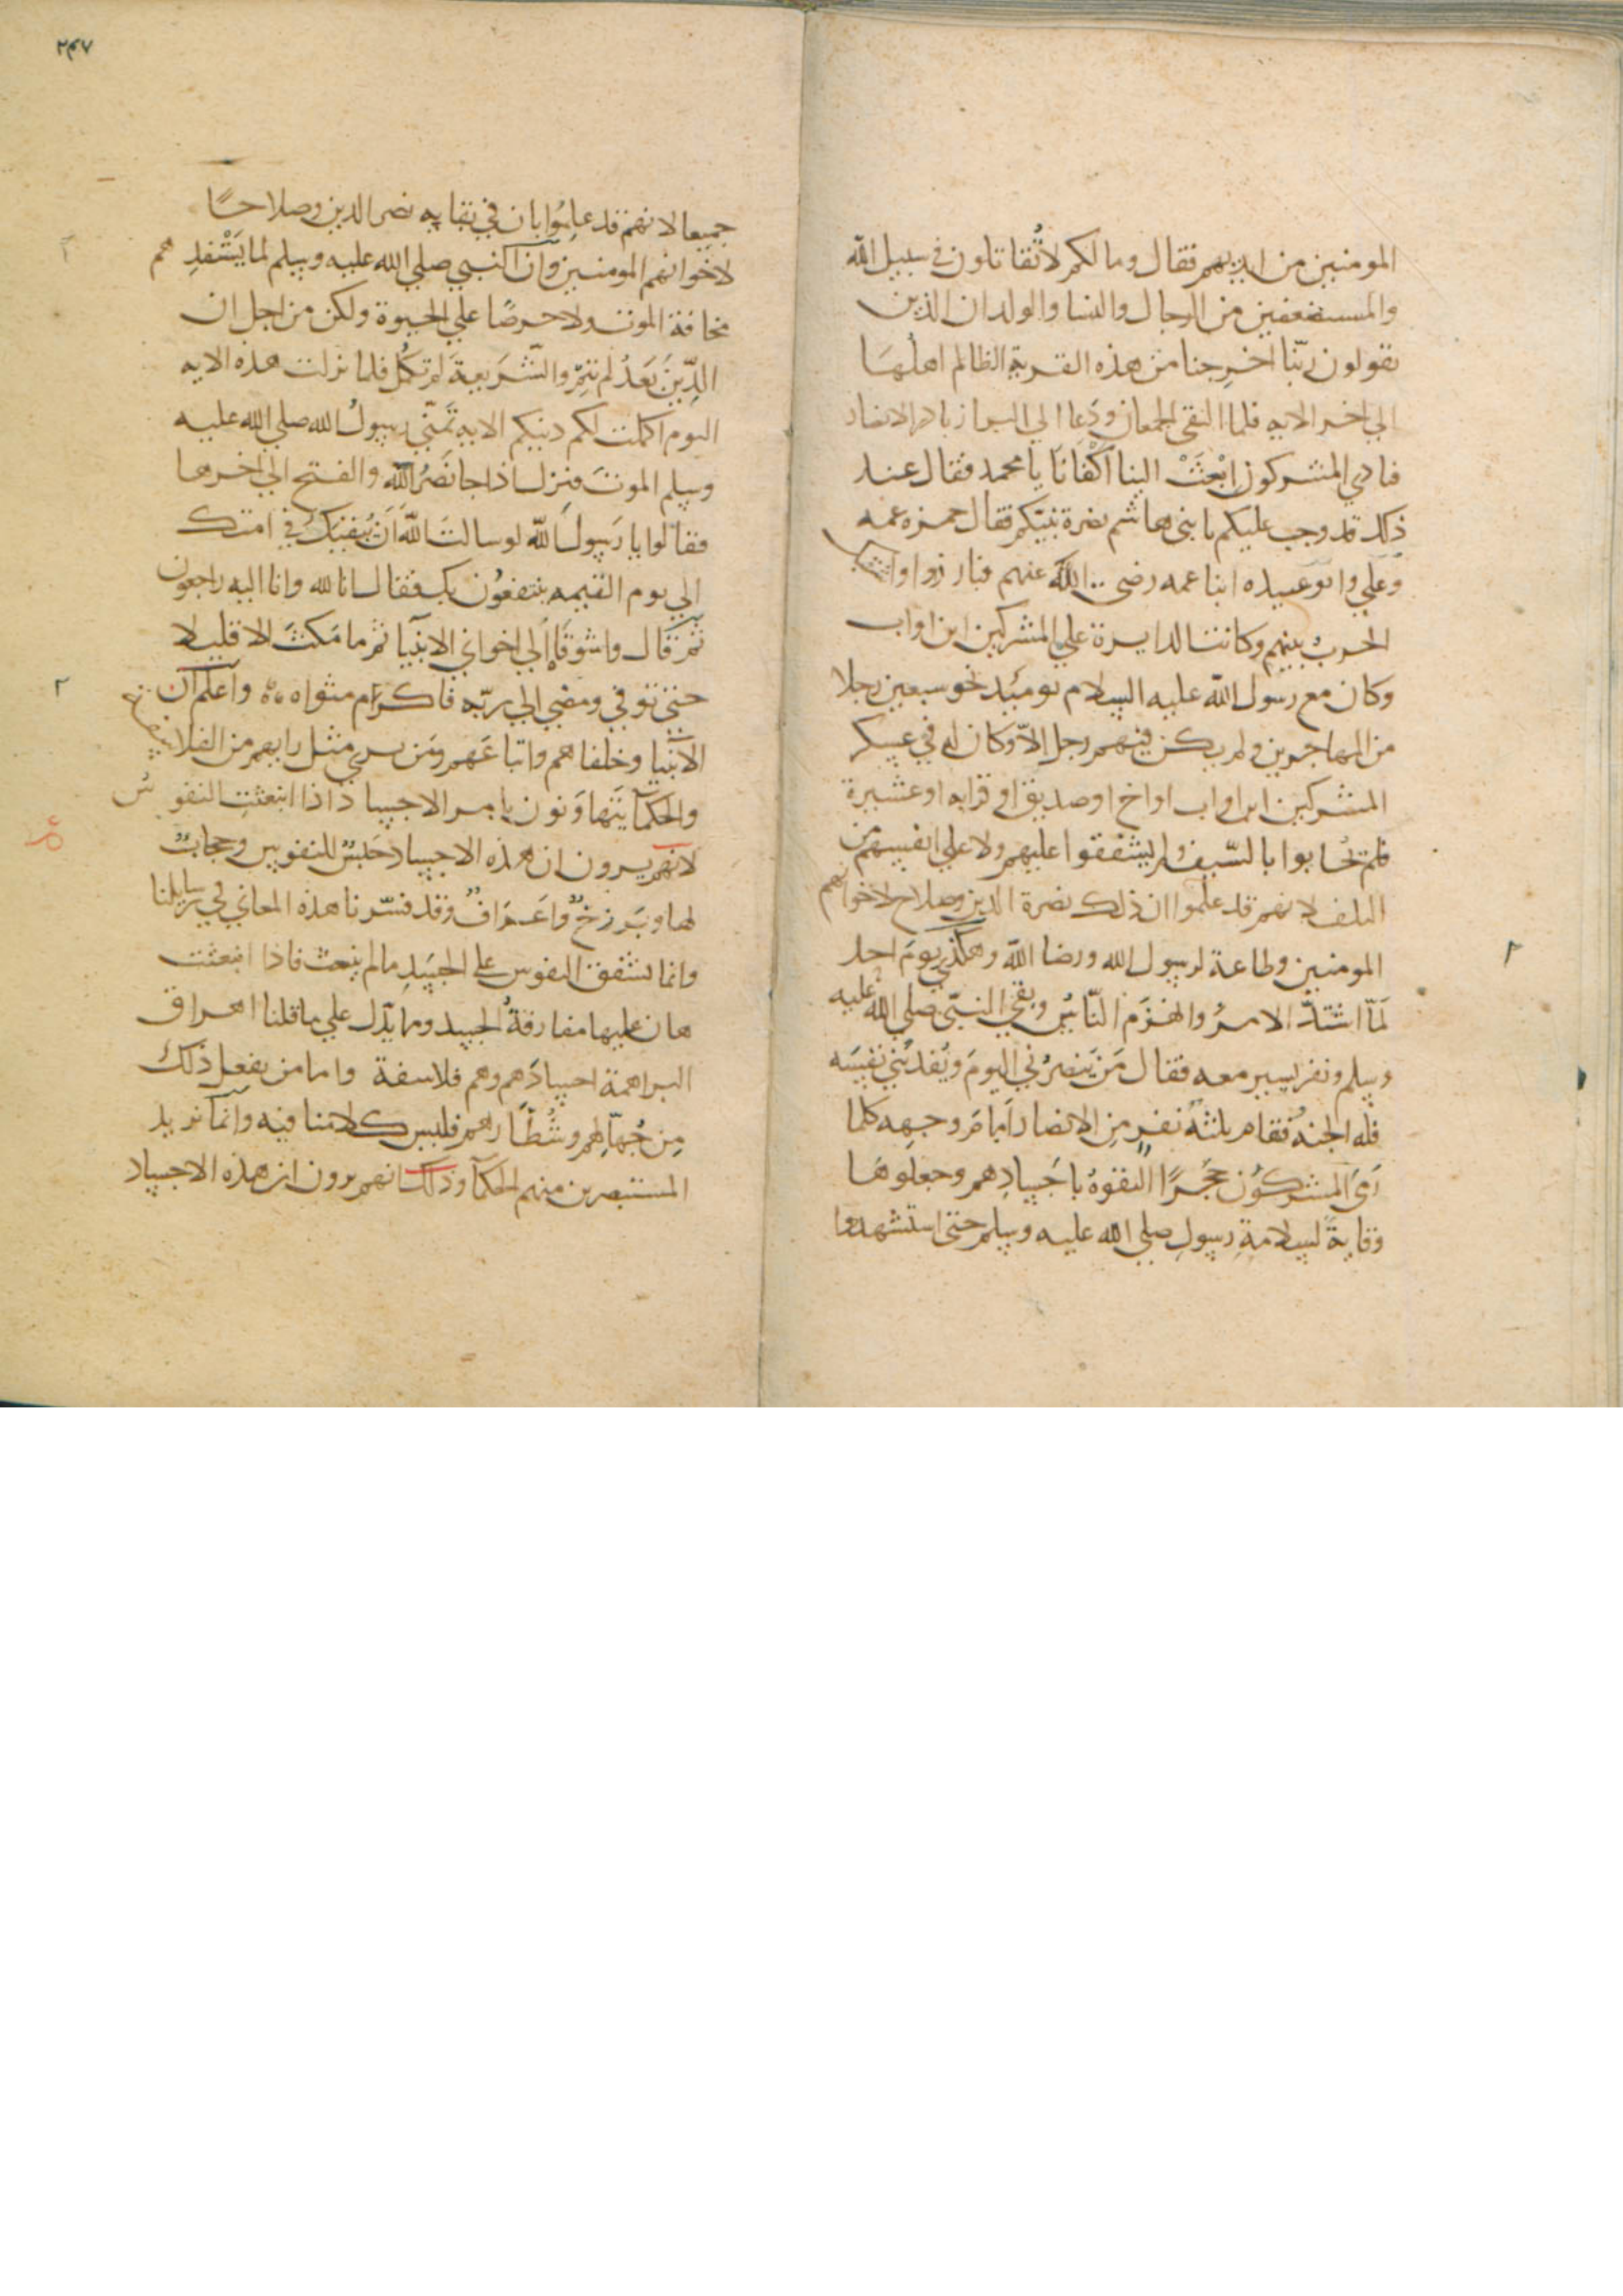 المومنين من ايديهم فقال وما لكم لا تُقاتلون في سبيل الله
والمستضعفين من الرجال والنسا والولدان الذين
يقولون ربّنا اخرِجنا من هذه القرية الظالم اهلُهَا
الى اخر الايه فلما التقى الجمعان ودَعا الى البراز بادر الانصار
فنادي المشركون ابْعَثْ الينا اكْفانَا يا محمد فقال عند
ذلك قد وجب عليكم يا بنى هاشم نصرة نبيّكم فقال حمزه عمه
وعلي وابو عبيده ابنا عمه رضى الله عنهم فبارزوا واشتد
الحربُ بينهم وكانت الدايرة علي المشركين
وكان مع رسول الله عليه السلام يوميذ نحو سبعين رجلا
من المهاجرين ولم يكن فيهم رجل الاّ وكان له في عسكر
المشركين اب او اخ او صديق او قرابه او عشيرة
فلم يحابوا بالسّيف ولم يشفقوا عليهم ولا علي انفسهم من
التلف لانهم قد علموا ان ذلك نصرة الدين وصلاح لاخوانهم
المومنين وطاعة لرسول الله ورضا الله وهكذى يومَ احد
لمّا اشتدّ الامرُ وانهزَم النّاسُ وبقي النبيّ صلي الله عليه
وسلم ونفر يسير معه فقال مَن يَنصرُني اليومَ ويُفديني نفسَه
فله الجنه فقام ثلثهُ نفرٍ مِن الانصار اَمامَ وجهِه كلما
رَمَى المشركُون حَجَرًا التقوهُ باَجسادِهم وجعلوهَا
وقايةً لسلامةِ رسولِ صلي الله عليه وسلم حتى استشهدوا
٢٤٧
جميعا لانهم قد علِمُوا بان في بقايه نصر الدين وصلاحًا
لاخوانهم المومنين وان النبي صلي الله عليه وسلم لما يَسْتَفدِهم
مخافة الموت ولا حرصًا علي الحيوة ولكن من اجل ان
الدِّينَ بَعدُ لم يتمّ والشَريعةَ لم تكمُل فلما نزلت هذه الايه
اليوم اكملت لكم دينكم الايه تمَنّي رسولُ الله صلي الله عليه
وسلم الموتَ فنزل اذا جا نَصْرُ الله والفتح الي اخرها
فقالوا يا رَسولَ الله لو سالتَ اللهَ اَن يُبقيَكَ في امتك
الي يوم القيمه ينتفعُون بك فقال انا لله وانا اليه راجعون
ثم قال واشوقَاه اِلي اخواني الانبيا ثم ما مَكثَ الا قليلا
حتي توفي ومضي الي ربّه فاكرَم مثواه واعلم ان
الانبيا وخلفاهم واتباعَهم ومَن يرى مثل رايهم من الفلاسفة
والحكما يَتَهاوَنون بامر الاجساد اذا انبعثتِ النفوسُ
لانهم يرون ان هذه الاجساد حَبسٌ للنفوس وحجابٌ
لها وبَرزخٌ واَعرَافٌ وقد فسّرنا هذه المعاني في رسايلنا
وانما تشفق النفوس علي الجسَدِ ما لم ينبعث فاذا انبعثت
هان عليها مفارقةُ الجسد ومما يدّل علي ما قلنا احراق
البراهمة اجسادَهم وهم فلاسفة واما من يفعل ذلك
مِن جُهّالِهم وشُطّارهم فليس كلامنا فيه وانما نريد
المستبصرين منهم الحكما وذلك انهم يرون ان هذه الاجساد